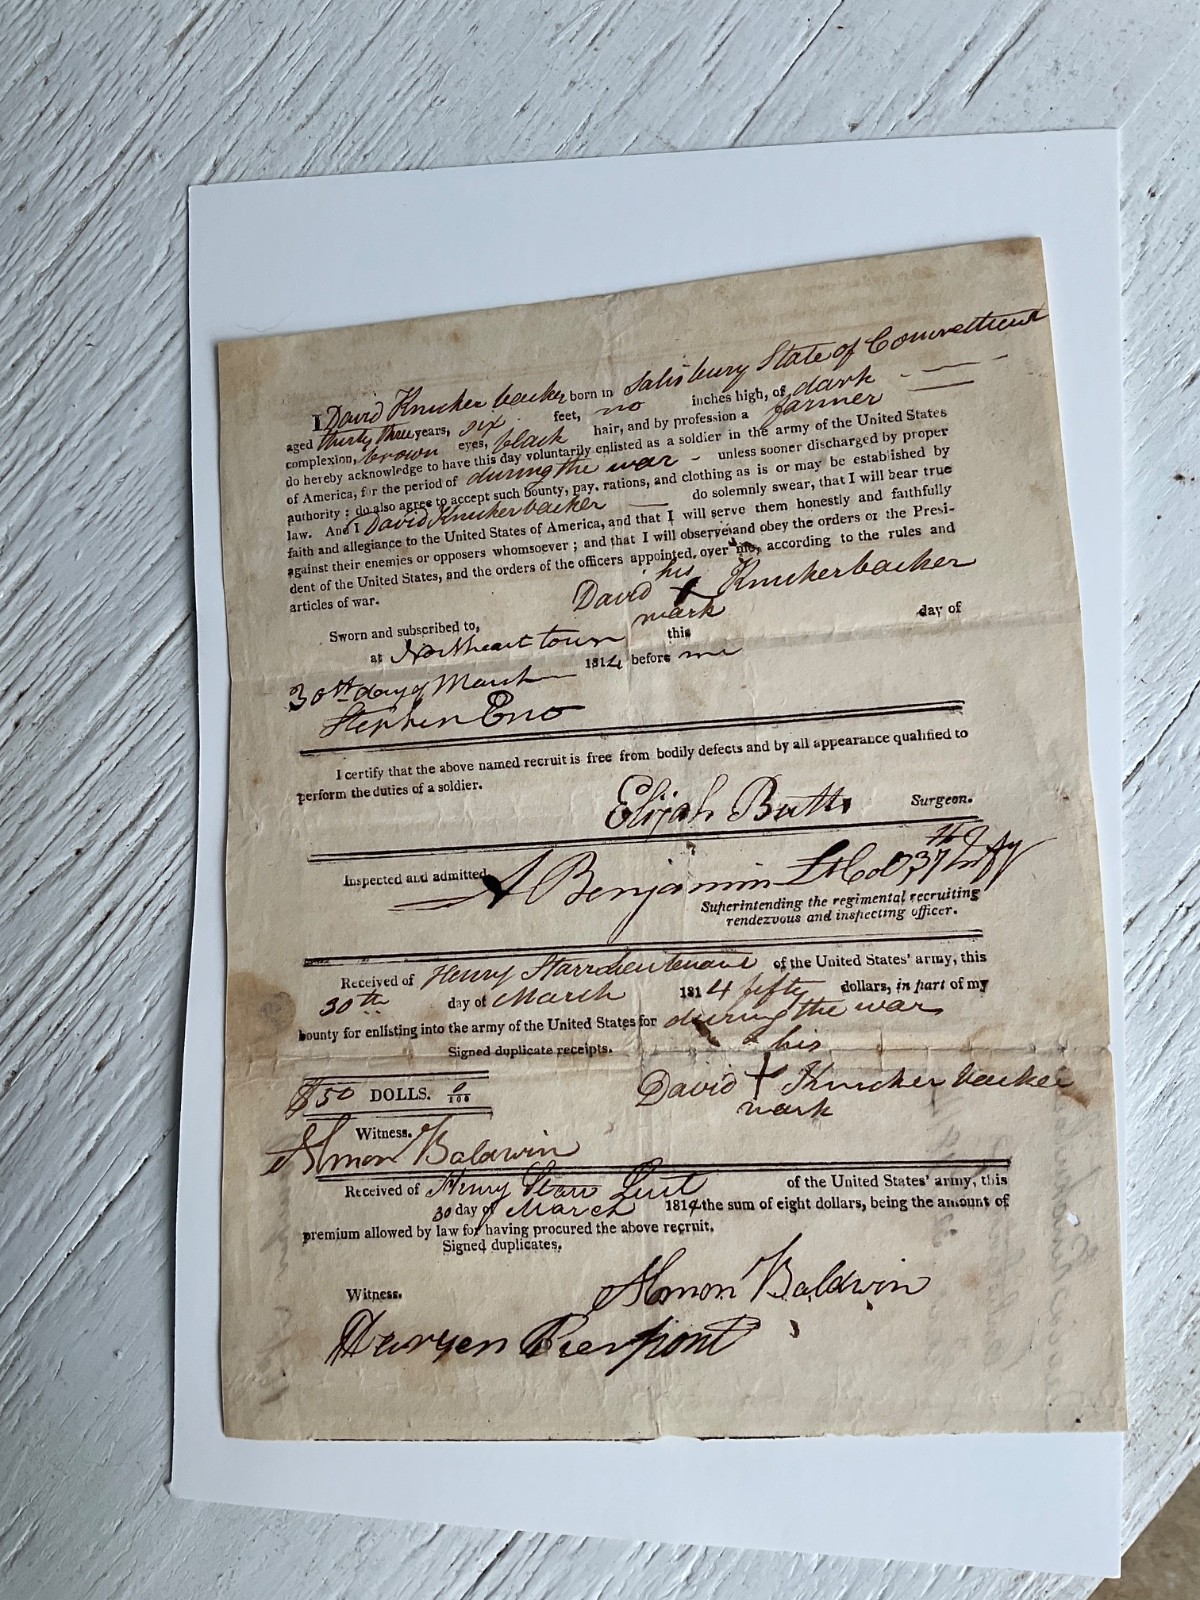 I David Knickerbacker born in Salisbury State of Connecticut
aged thirty three years, six feet, no inches high, of dark
complexion, brown eyes, black hair, and by profession a farmer
do hereby acknowledge to have this day voluntarily enlisted as a soldier in the army of the United States
of America, for the period of during the war - unless sooner discharged by proper
authority ; do also agree to accept such bounty, pay, rations, and clothing as is or may be established by
law. And I David Knickerbacker do solemnly swear, that I will bear true
faith and allegiance to the United States of America, and that I will serve them honestly and faithfully
against their enemies or opposers whomsoever ; and that I will observe and obey the orders of the Presi-
dent of the United States, and the orders of the officers appointed over me, according to the rules and
articles of war.
his
David + Knickerbacker
mark
Sworn and subscribed to,
at Northeast town this day of
30th day of March 1814 before me
Stephen Eno
I certify that the above named recruit is free from bodily defects and by all appearance qualified to
perform the duties of a soldier.
Elijah Butts Surgeon.
Inspected and admitted, A Benjamin Lt Col 37th Infy
Superintending the regimental recruiting
rendezvous and inspecting officer.
Received of Henry Starr Lieutenant of the United States' army, this
30th day of March 1814 fifty dollars, in part of my
bounty for enlisting into the army of the United States for during the war
Signed duplicate receipts.
his
David + Knickerbacker
mark
$50 DOLLS. 0/100
Witness.
Almon Baldwin
Received of Henry Starr Lieut of the United States' army, this
30 day of March 1814 the sum of eight dollars, being the amount of
premium allowed by law for having procured the above recruit.
Signed duplicates.
Almon Baldwin
Witness.
Pierpont